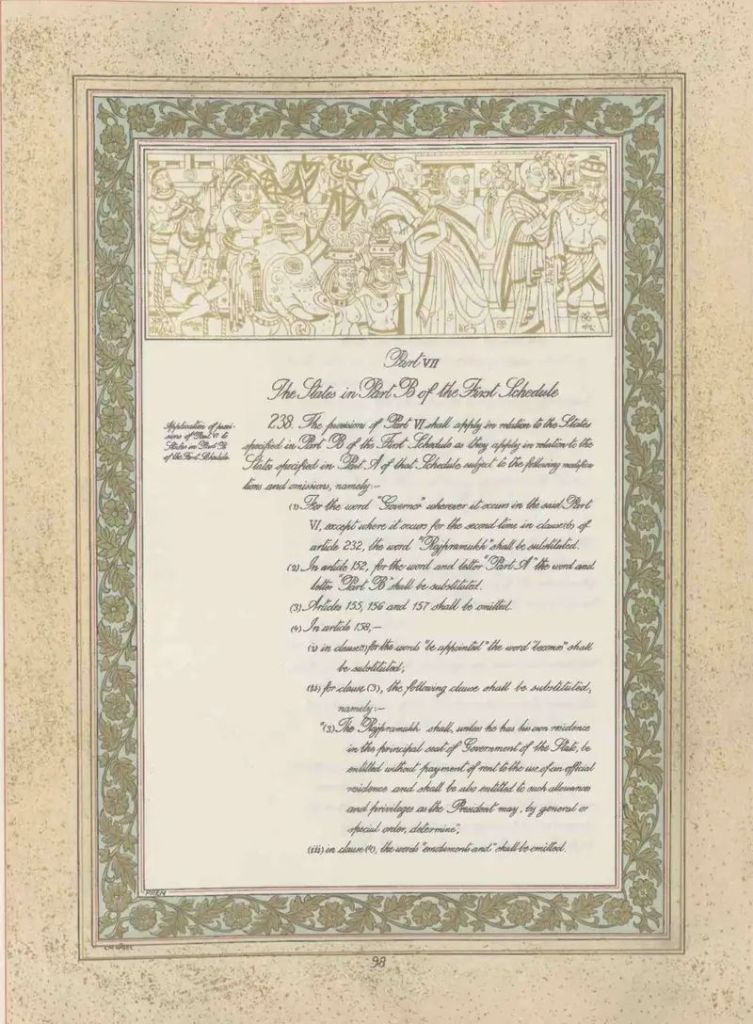 Part VII
The States in Part B of the First Schedule
Application of provi-
sions of Part VI to
States in Part B
of the First Schedule.
238. The provisions of Part VI shall apply in relation to the States
specified in Part B of the First Schedule as they apply in relation to the
States specified in Part A of that Schedule subject to the following modifica
tions and omissions, namely:—
(1) For the word "Governor" wherever it occurs in the said Part
VI, except where it occurs for the second time in clause (b) of
article 232, the word "Rajpramukh" shall be substituted.
(2) In article 152, for the word and letter "Part A" the word and
letter "Part B" shall be substituted.
(3) Articles 155, 156 and 157 shall be omitted.
(4) In article 158,—
(i) in clause (1) for the words "be appointed" the word "becomes" shall
be substituted;
(ii) for clause (3), the following clause shall be substituted,
namely:—
"(3) The Rajpramukh shall, unless he has his own residence
in the principal seat of Government of the State, be
entitled without payment of rent to the use of an official
residence and shall be also entitled to such allowances
and privileges as the President may, by general or
special order, determine";
(iii) in clause (4), the words "emoluments and" shall be omitted.
98